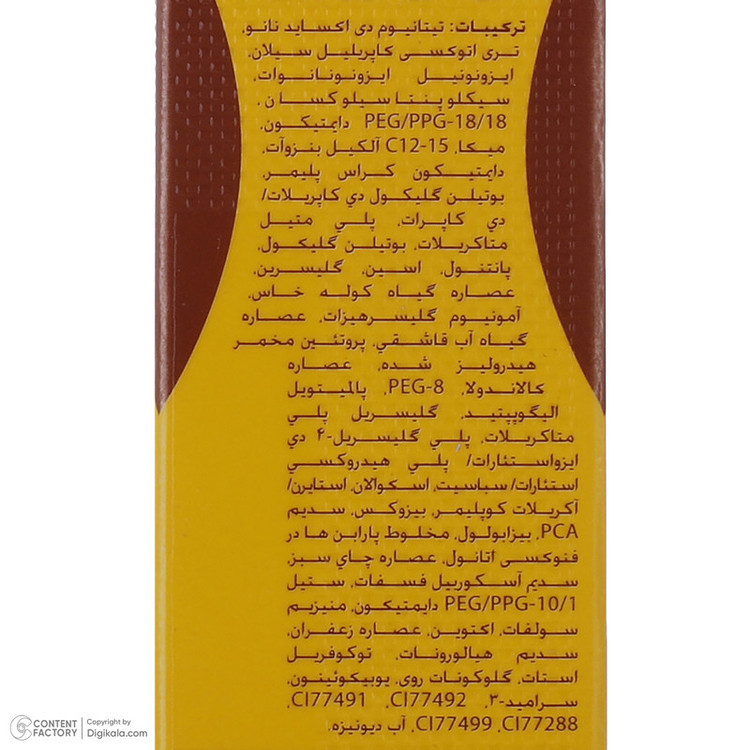 ترکیبات: تیتانیوم دی اکساید نانو،
تری اتوکسی کاپریلیل سیلان،
ایزونونیل ایزونونانوات،
سیکلو پنتا سیلو کسان،
PEG/PPG-18/18 دایمتیکون،
میکا، C12-15 آلکیل بنزوآت،
دایمتیکون کراس پلیمر،
بوتیلن گلیکول دي کاپریلات/
دي کاپرات، پلي متیل
متاکریلات، بوتیلن گلیکول،
پانتنول، اسین، گلیسرین،
عصاره گیاه کوله خاس،
آمونیوم گلیسرهیزات، عصاره
گیاه آب قاشقي، پروتئین مخمر
هیدرولیز شده، عصاره
کالاندولا، PEG-8، پالمیتویل
الیگوپپتید، گلیسریل پلي
متاکریلات، پلي گلیسریل-۴ دي
ایزواستئارات/ پلي هیدروکسي
استئارات/ سباسیت، اسکوالان، استایرن/
آکریلات کوپلیمر، بیزوکس، سدیم
PCA، بیزابولول، مخلوط پارابن ها در
فنوکسي اتانول، عصاره چاي سبز،
سدیم آسکوربیل فسفات، ستیل
PEG/PPG-10/1 دایمتیکون، منیزیم
سولفات، اکتوین، عصاره زعفران،
سدیم هیالورونات، توکوفریل
استات، گلوکونات روي، یوبیکوئینون،
سرامید-۳، CI77492، CI77491،
CI77288، CI77499، آب دیونیزه.
CONTENT FACTORY
Copyright by Digikala.com